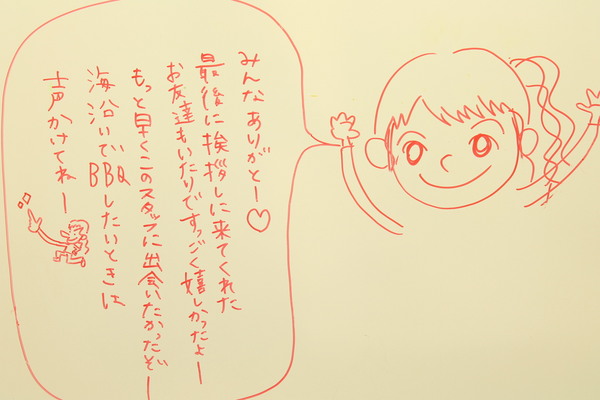 みんなありがとー♡
最後に挨拶しに来てくれた
お友達もいたりですっごく嬉しかったよー
もっと早くこのスタッフに出会いたかったぞー
海沿いでBBQしたいときは
声かけてねー